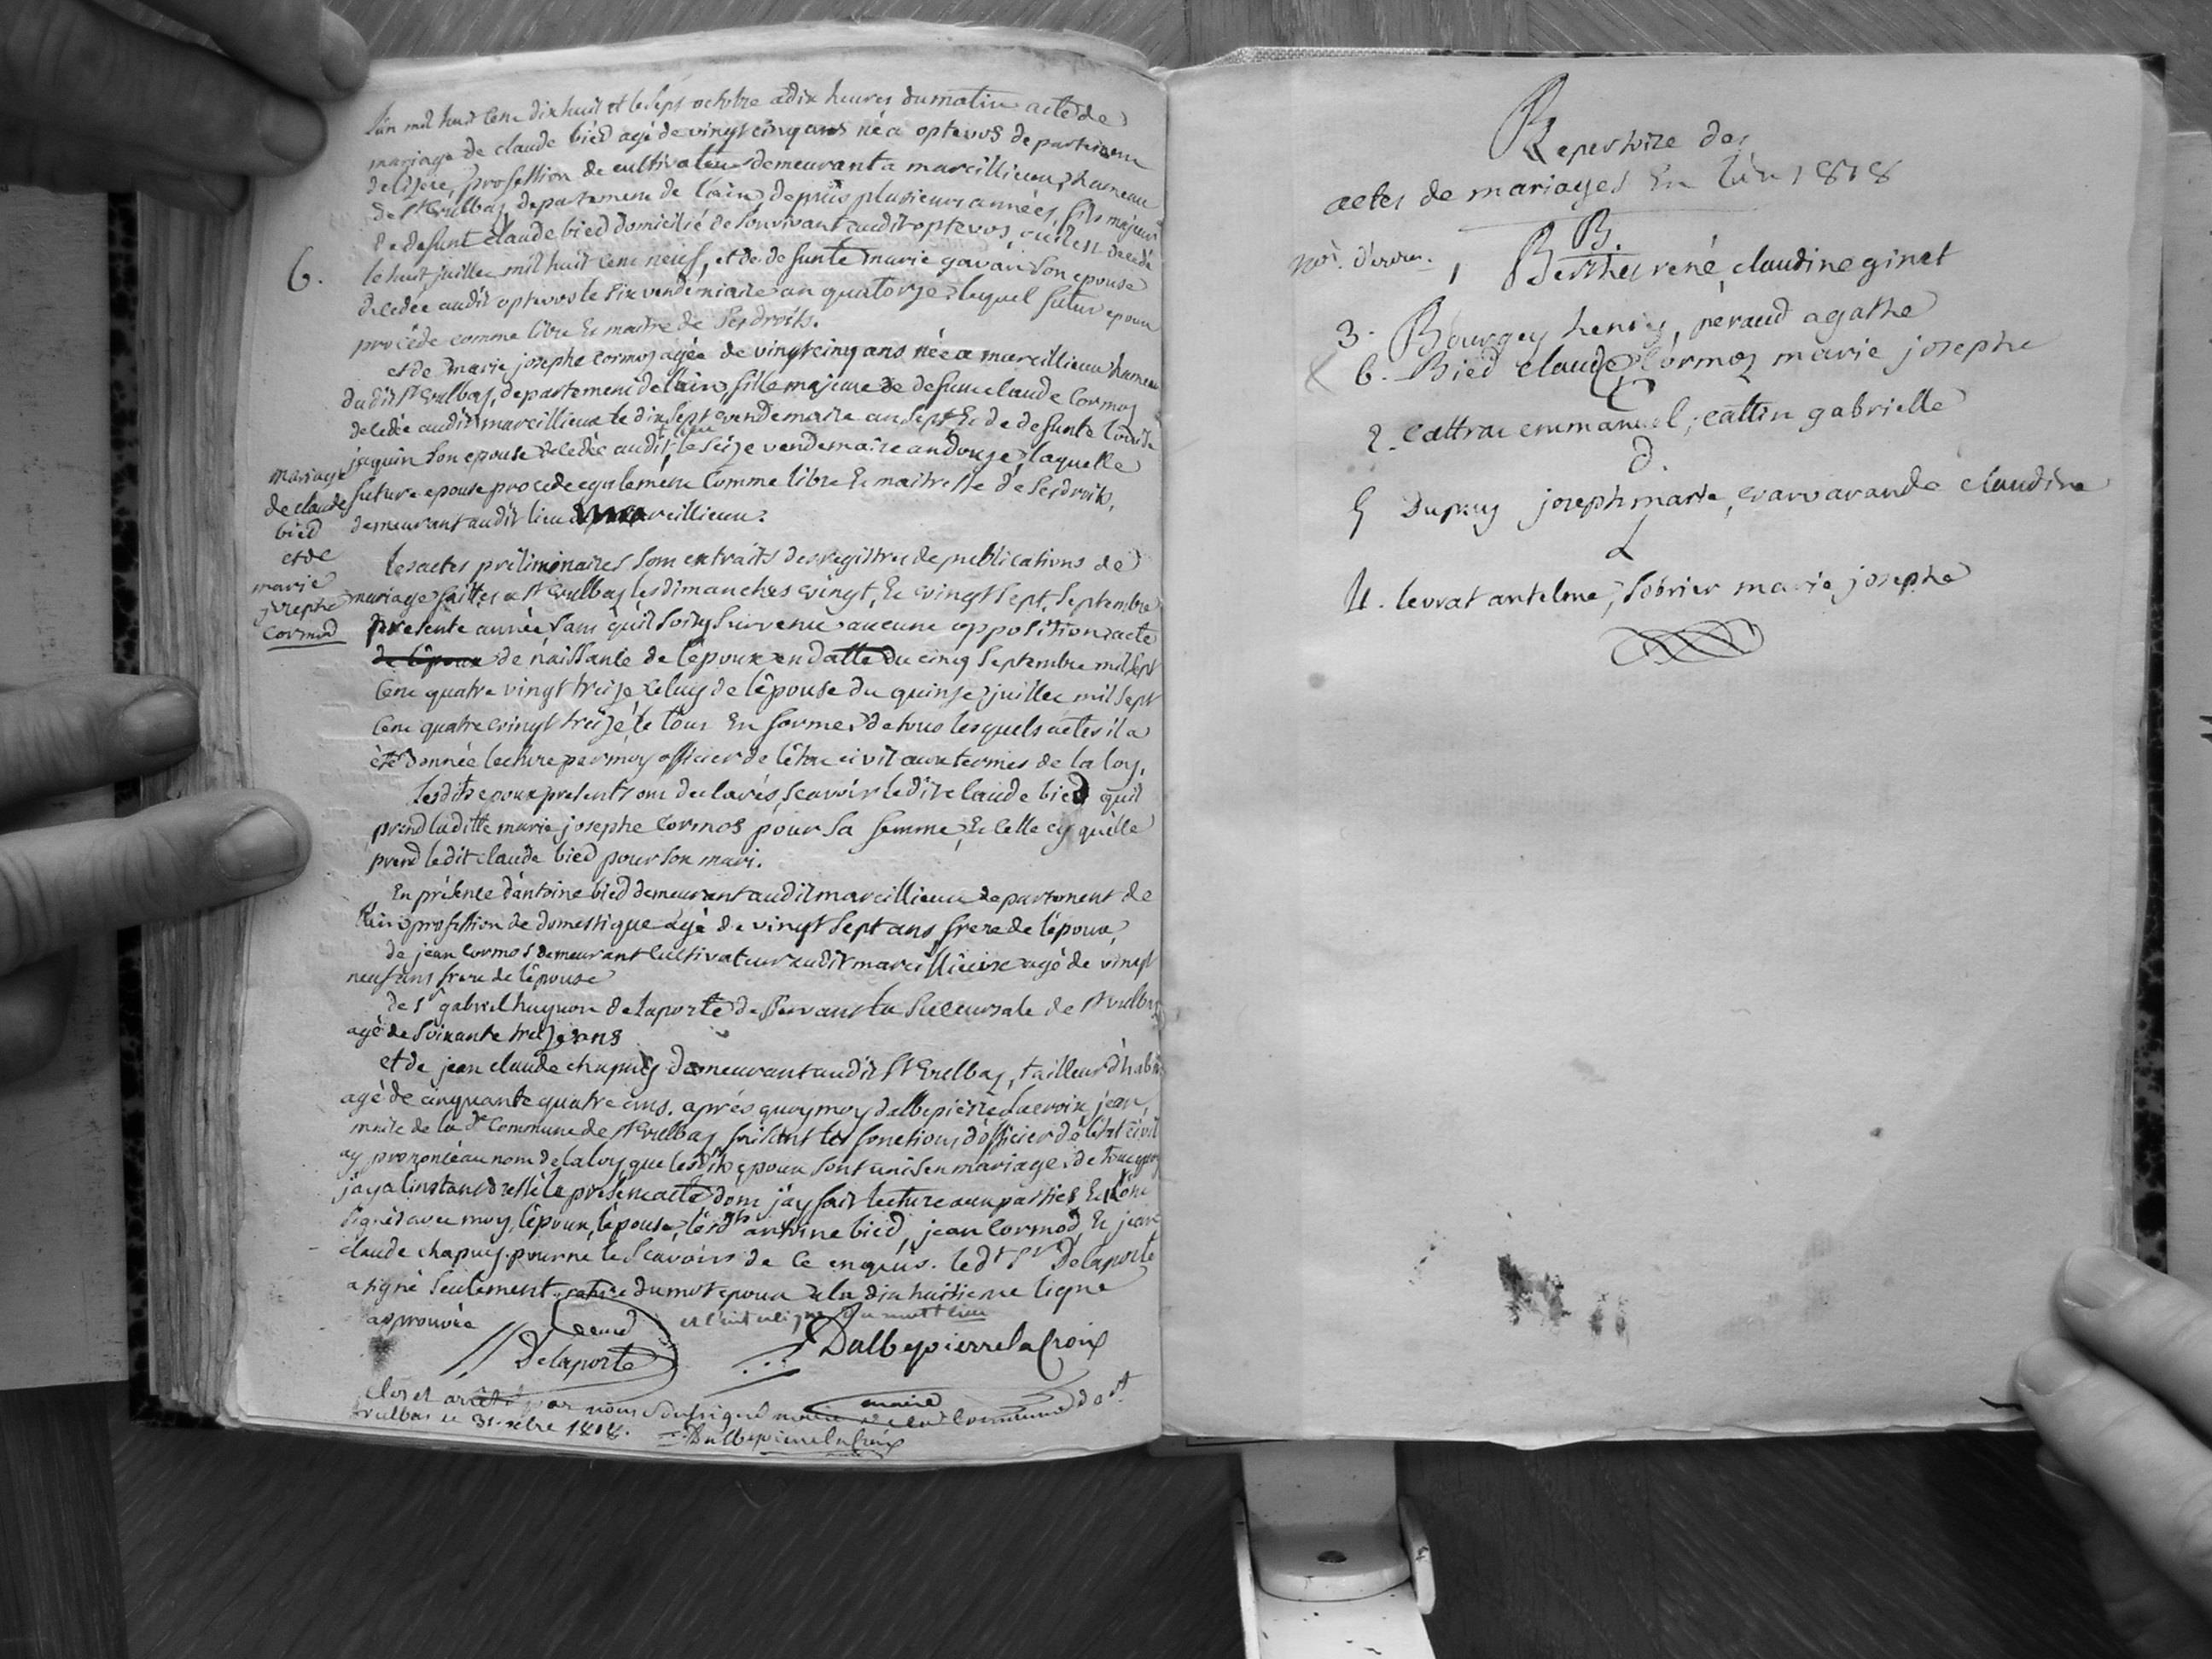 6.
Mariage
de claude
bied
et de
marie
josephe
Cormod
L'an mil huit Cent dix huit et le Sept octobre a dix heures du matin acte de
mariage de claude bied agé de vingt cinq ans né a optevos departement
de l'isere, profession de cultivateur demeurant a marcillieux, hameau
de St Vulbas, departement de l'ain, depuis plusieurs années, fils majeur
de defunt claude bied domicilié de Son vivant audit optevos, où il est decedé
le huit juillet mil huit Cent neuf, et de defunte marie gavan Son epouse
decedée audit optevos le Six vendemiaire an quatorze, lequel futur epoux
procède comme libre Et maitre de Ses droits.
et de marie josephe Cormoz agée de vingt cinq ans née a marcillieux hameau
dudit St Vulbas, departement de l'ain, fille majeure de defunt claude Cormoz
decedé audit marcillieux le dix Sept vendemaire an Sept Et de defunte Louise
jaquin Son epouse decedée audit lieu le Seize vendemaire an douze, laquelle
future epouse procede egalement Comme libre Et maitresse de Ses droits,
demeurant audit lieu de marcillieux.
Les actes préliminaires Sont extraits des registres de publications de
mariage faittes a St Vulbas les dimanches vingt, Et vingt Sept, Septembre
presente année Sans qu'il Soit y Survenu aucune opposition acte
de l'epoux de naissance de l'epoux en datte du cinq Septembre mil Sept
Cent quatre vingt treize Celuy de l'épouse du quinze juillet mil Sept
Cent quatre vingt treize, le tout En forme, de tous lesquels actes il a
été donnée lecture par moy officier de l'état civil aux termes de la loy.
Lesdits epoux presents ont declarés, Scavoir ledit claude bied qu'il
prend laditte marie josephe Cormos pour Sa femme, Et Celle cy qu'elle
prend ledit claude bied pour Son mari.
En présence d'antoine bied demeurant audit marcillieux departement de
l'ain profession de domestique agé de vingt Sept ans, frere de l'époux,
de jean Cormos demeurant Cultivateur audit marcillieux agé de vingt
neuf ans frere de l'épouse
de Sr gabriel huguon de laporte desservant la Succursale de St Vulbas
agé de Soixante treize ans
et de jean claude chapuis demeurant audit St Vulbas, tailleur d'habits
agé de cinquante quatre ans. aprés quoy moy dalbepierre Lacroix jean
maire de la de Commune de St Vulbas faisant les fonctions d'officier de l'état civil
ay prononcé au nom de la loy, que lesdits epoux Sont unis en mariage, de tout quoy
j'ay a l'instant dressé le présent acte dont j'ay fait lecture aux parties Et
Signés avec moy, l'époux, l'épouse, lesdts antoine bied, jean Cormod, Et jean
claude chapuy pour ne le Scavoirs de Ce enquis. led Sr Delaporte
a signé Seulement, rature du mot epoux a la dix huitieme ligne
approuvée et l'interligne du mot lieu
Delaporte
Dalbepierrelacroix
maire
Clos et arrêté par nous Soussigné maire de la commune de St
vulbas le 31 xbre 1818.
Dalbepierrelacroix
Repertoire des
actes de mariages En l'an 1818
B.
nos. d'ordre. 1 Berthet rené, claudine ginet
3. Bourgey henry, peraud agathe
6. Bied claude, Cormoz marie josephe
C
2. Cattrac emmanuel, cattin gabrielle
d.
5 Dupuy joseph marie, varvarande claudine
L
4. levrat antelme, Sobrier marie josephe